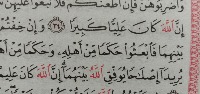 واضربوهن فإن أطعنكم فلا تبغوا عليهن
إن الله كان عليا كبيرا ٣٤ وإن خفتم
بينهما فابعثوا حكما من أهله وحكما من أهلها
يريدا إصلاحا يوفق الله بينهما إن الله كان عليما